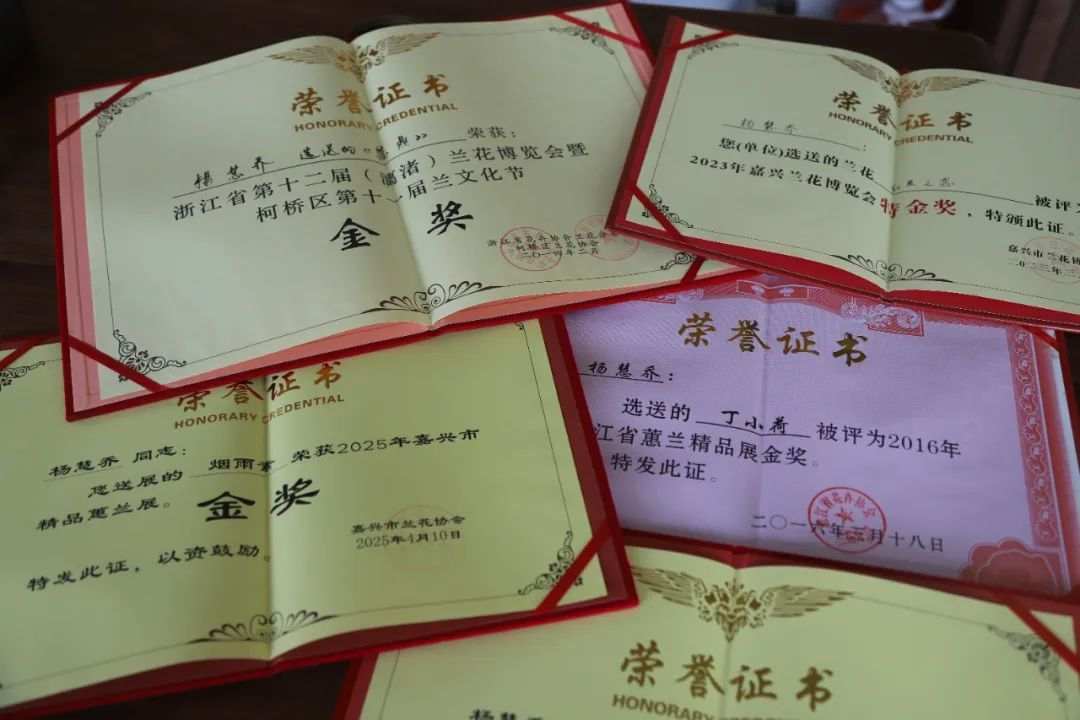 荣誉证书
HONORARY CREDENTIAL
杨慧乔 选送的《 鼎》 荣获：
浙江省第十二届（漓渚）兰花博览会暨
柯桥区第十 届兰文化节
金奖
浙江省花卉协会兰花分会
柯桥区兰花协会
二〇一四年二月
荣誉证书
HONORARY CREDENTIAL
杨慧乔：
您(单位)选送的兰花 被评为
2023年嘉兴兰花博览会特金奖，特颁此证。
嘉兴市兰花博
荣誉证书
HONORARY CREDENTIAL
杨慧乔 同志：
您送展的 烟雨 荣获2025年嘉兴市
精品蕙兰展。
金奖
特发此证，以资鼓励。
嘉兴市兰花协会
2025年4月10日
荣誉证书
杨慧乔：
选送的 丁小荷 被评为2016年
江省蕙兰精品展金奖。
特发此证。
二〇一六年三月十八日
荣誉证书
HONORARY CREDENTIAL
杨慧乔